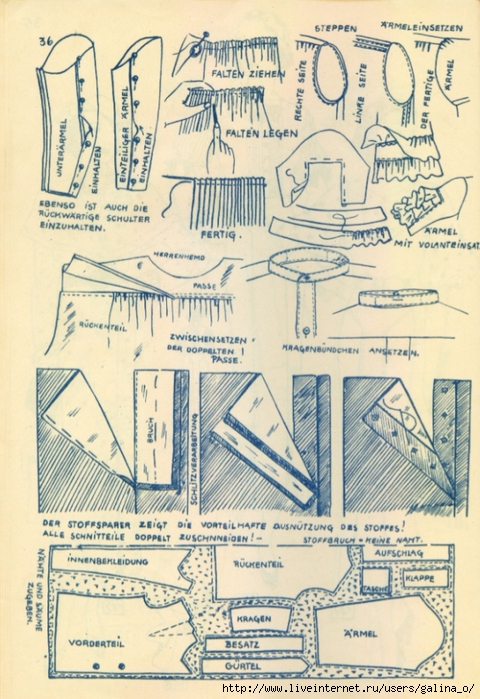 36
STEPPEN
ÄRMELEINSETZEN
FALTEN ZIEHEN
RECHTE SEITE
LINKE SEITE
DER FERTIGE
ÄRMEL
UNTERÄRMEL
EINHALTEN
EINTEILIGER ÄRMEL
EINHALTEN
FALTEN LEGEN
EBENSO IST AUCH DIE
RÜCKWÄRTIGE SCHULTER
EINZUHALTEN.
FERTIG.
ÄRMEL
MIT VOLANTEINSAT
HERRENHEMD
PASSE
RÜCKENTEIL
ZWISCHENSETZEN
DER DOPPELTEN
PASSE.
KRAGENBÜNDCHEN ANSETZEN.
BRUCH
SCHLITZVERARBEITUNG
DER STOFFSPARER ZEIGT DIE VORTEILHAFTE AUSNÜTZUNG DES STOFFES!
ALLE SCHNITTEILE DOPPELT ZUSCHNNEIDEN! – STOFFBRUCH = KEINE NAHT.
NÄHTE UND SÄUME
ZUGEBEN.
INNENBEKLEIDUNG
RÜCKENTEIL
AUFSCHLAG
TASCHE
KLAPPE
KRAGEN
VORDERTEIL
BESATZ
ÄRMEL
GÜRTEL
http://www.liveinternet.ru/users/galina_o/